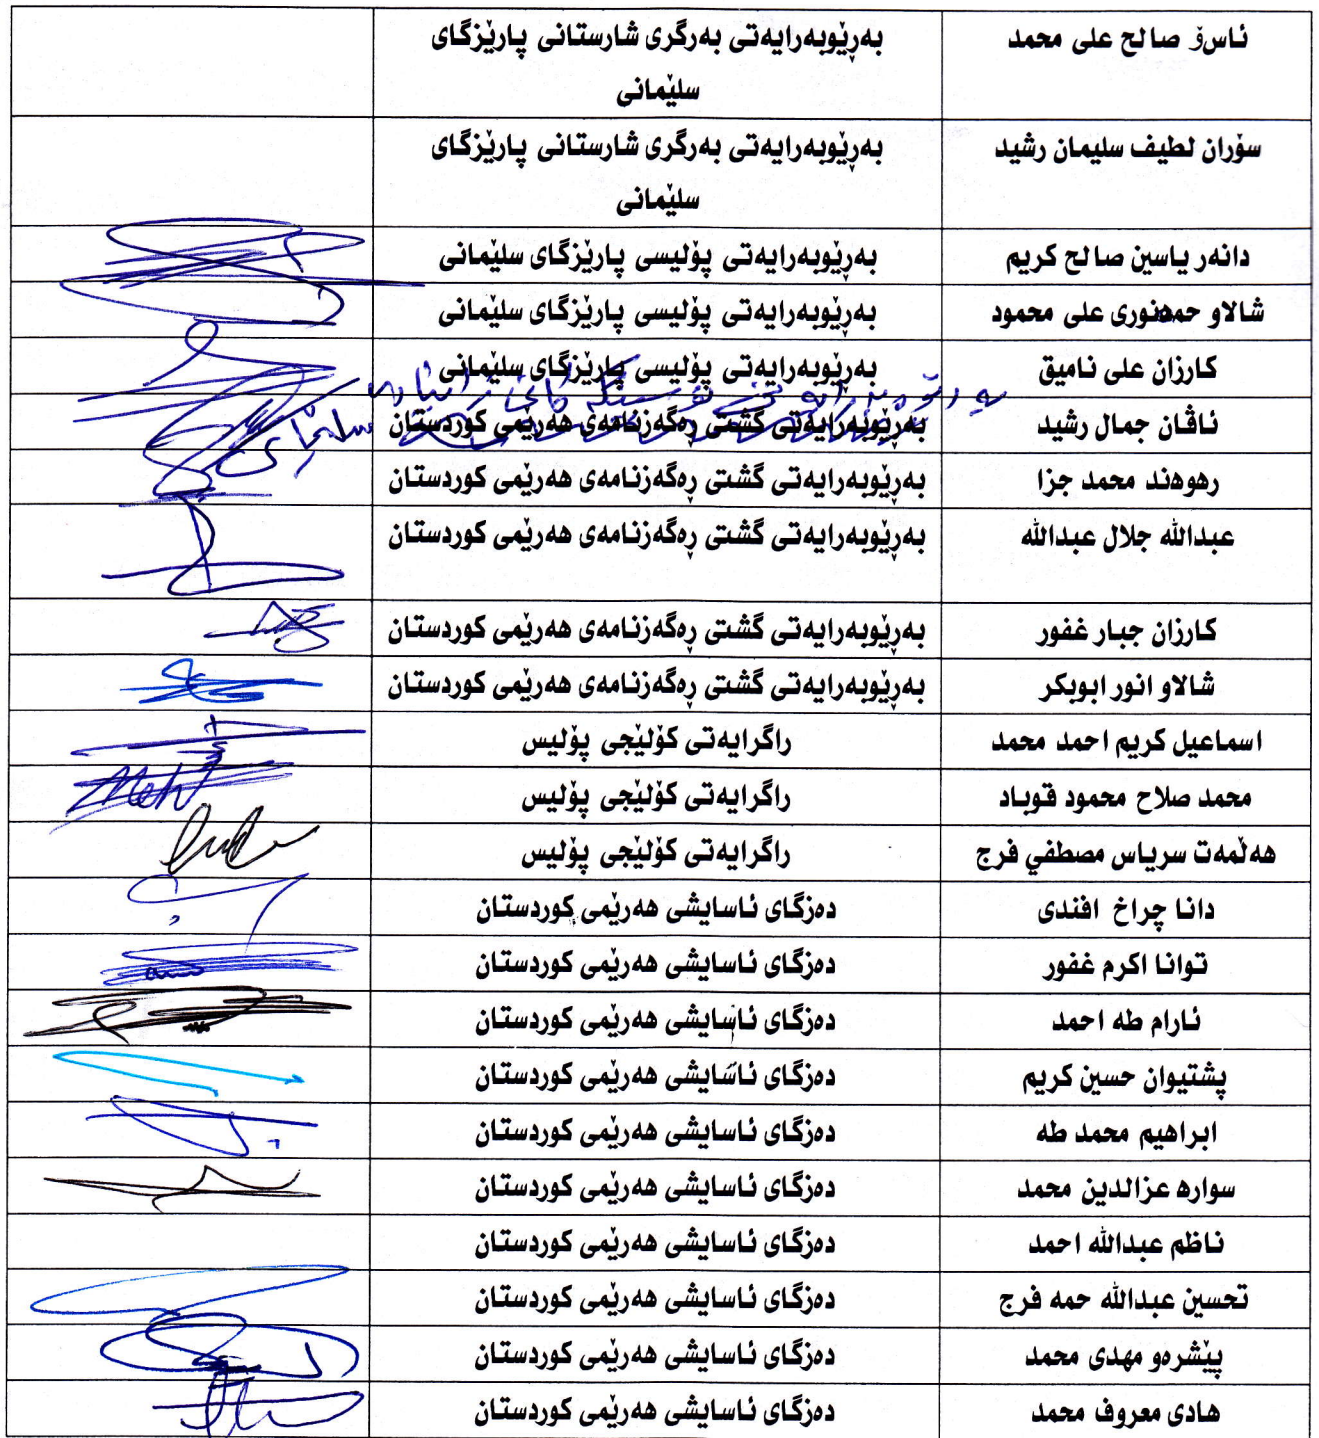 ئاسۆ صالح علی محمد
بەڕێوبەرایەتی بەرگری شارستانی پارێزگای
سلێمانی
سۆران لطیف سلیمان رشید
بەڕێوبەرایەتی بەرگری شارستانی پارێزگای
سلێمانی
دانەر یاسین صالح کریم
بەڕێوبەرایەتی پۆلیسی پارێزگای سلێمانی
شالاو حمەنوری علی محمود
بەڕێوبەرایەتی پۆلیسی پارێزگای سلێمانی
کارزان علی نامیق
بەڕێوبەرایەتی پۆلیسی پارێزگای سلێمانی
ئاڤان جمال رشید
بەڕێوبەرایەتی گشتی ڕەگەزنامەی هەرێمی کوردستان
رهوهند محمد جزا
بەڕێوبەرایەتی گشتی ڕەگەزنامەی هەرێمی کوردستان
عبدالله جلال عبدالله
بەڕێوبەرایەتی گشتی ڕەگەزنامەی هەرێمی کوردستان
کارزان جبار غفور
بەڕێوبەرایەتی گشتی ڕەگەزنامەی هەرێمی کوردستان
شالاو انور ابوبکر
بەڕێوبەرایەتی گشتی ڕەگەزنامەی هەرێمی کوردستان
اسماعیل کریم احمد محمد
راگرایەتی کۆلێجی پۆلیس
محمد صلاح محمود قوباد
راگرایەتی کۆلێجی پۆلیس
هەڵمەت سریاس مصطفي فرج
راگرایەتی کۆلێجی پۆلیس
دانا چراخ افندی
دەزگای ئاسایشی هەرێمی کوردستان
توانا اکرم غفور
دەزگای ئاسایشی هەرێمی کوردستان
ئارام طه احمد
دەزگای ئاسایشی هەرێمی کوردستان
پشتیوان حسین کریم
دەزگای ئاسایشی هەرێمی کوردستان
ابراهیم محمد طه
دەزگای ئاسایشی هەرێمی کوردستان
سواره عزالدین محمد
دەزگای ئاسایشی هەرێمی کوردستان
ناظم عبدالله احمد
دەزگای ئاسایشی هەرێمی کوردستان
تحسین عبدالله حمه فرج
دەزگای ئاسایشی هەرێمی کوردستان
پێشرەو مهدی محمد
دەزگای ئاسایشی هەرێمی کوردستان
هادی معروف محمد
دەزگای ئاسایشی هەرێمی کوردستان